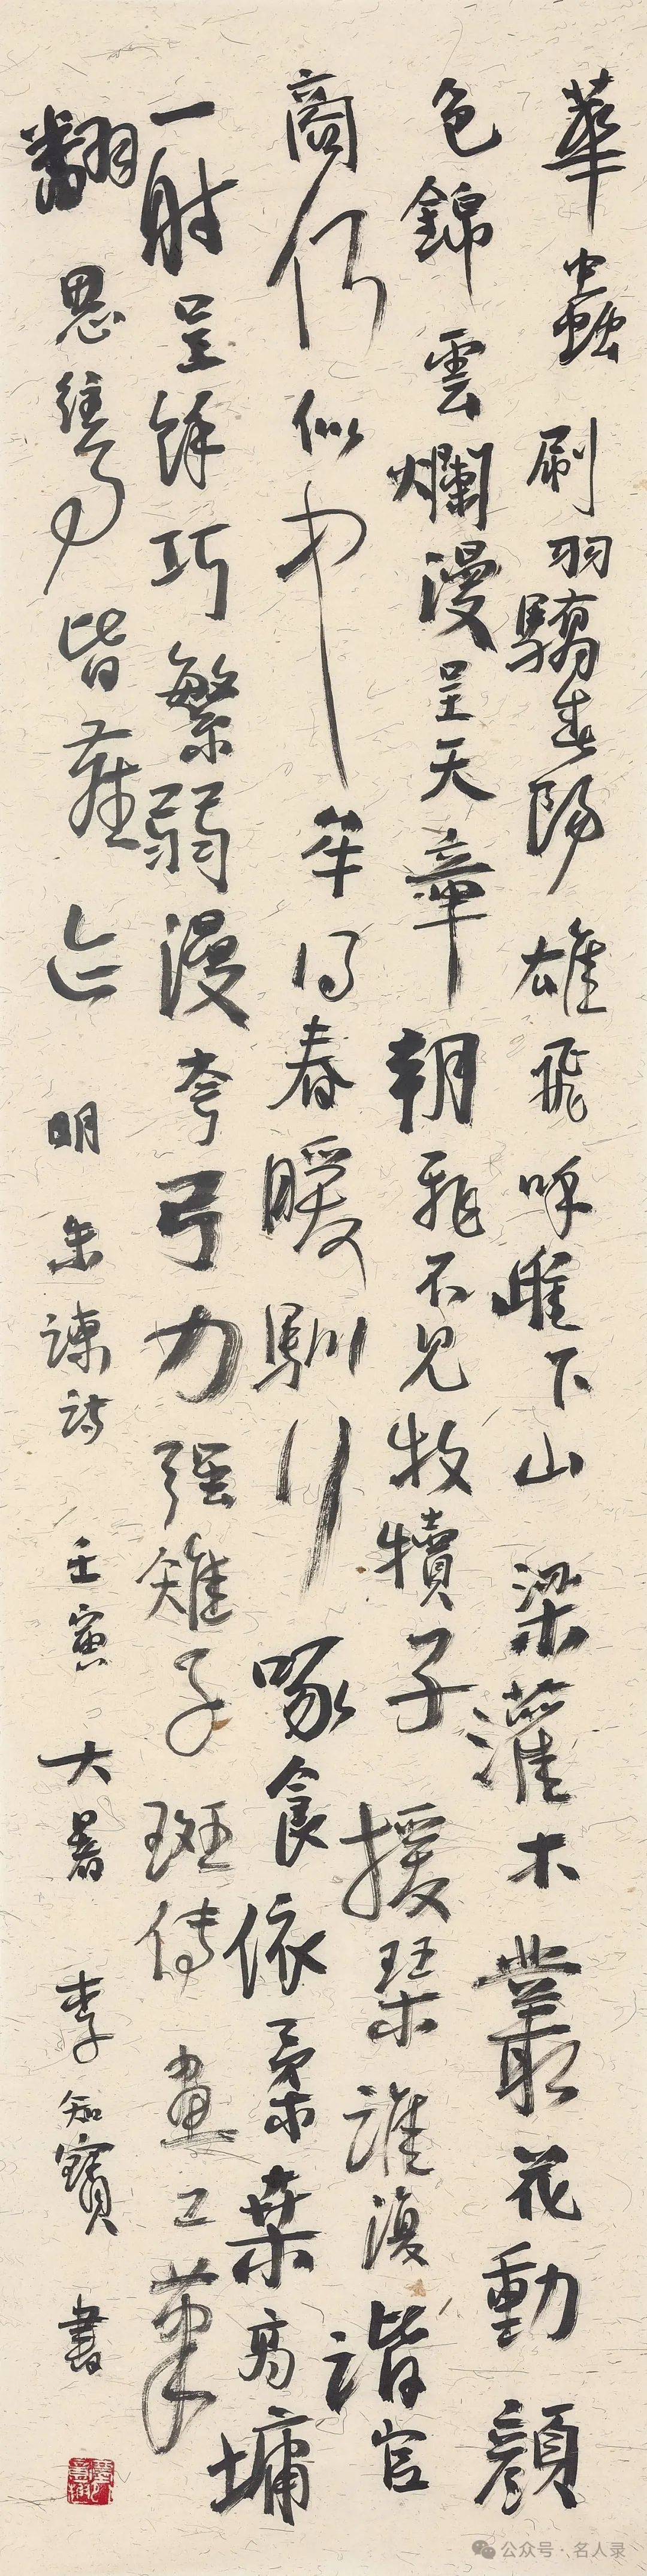 華蟲刷羽驕春陽雄飛呼雌下山梁灌木叢花動顏
色錦雲爛漫呈天章朝飛不見牧犢子援琴誰復諧宮
商何似中牟得春暖馴行啄食依柔桑高墉
一射呈餘巧繁弱漫夸弓力强雉子斑傳畫工筆
翻思往事皆落
明 朱諫詩 壬寅大暑 李知寶書
公众号·名人录